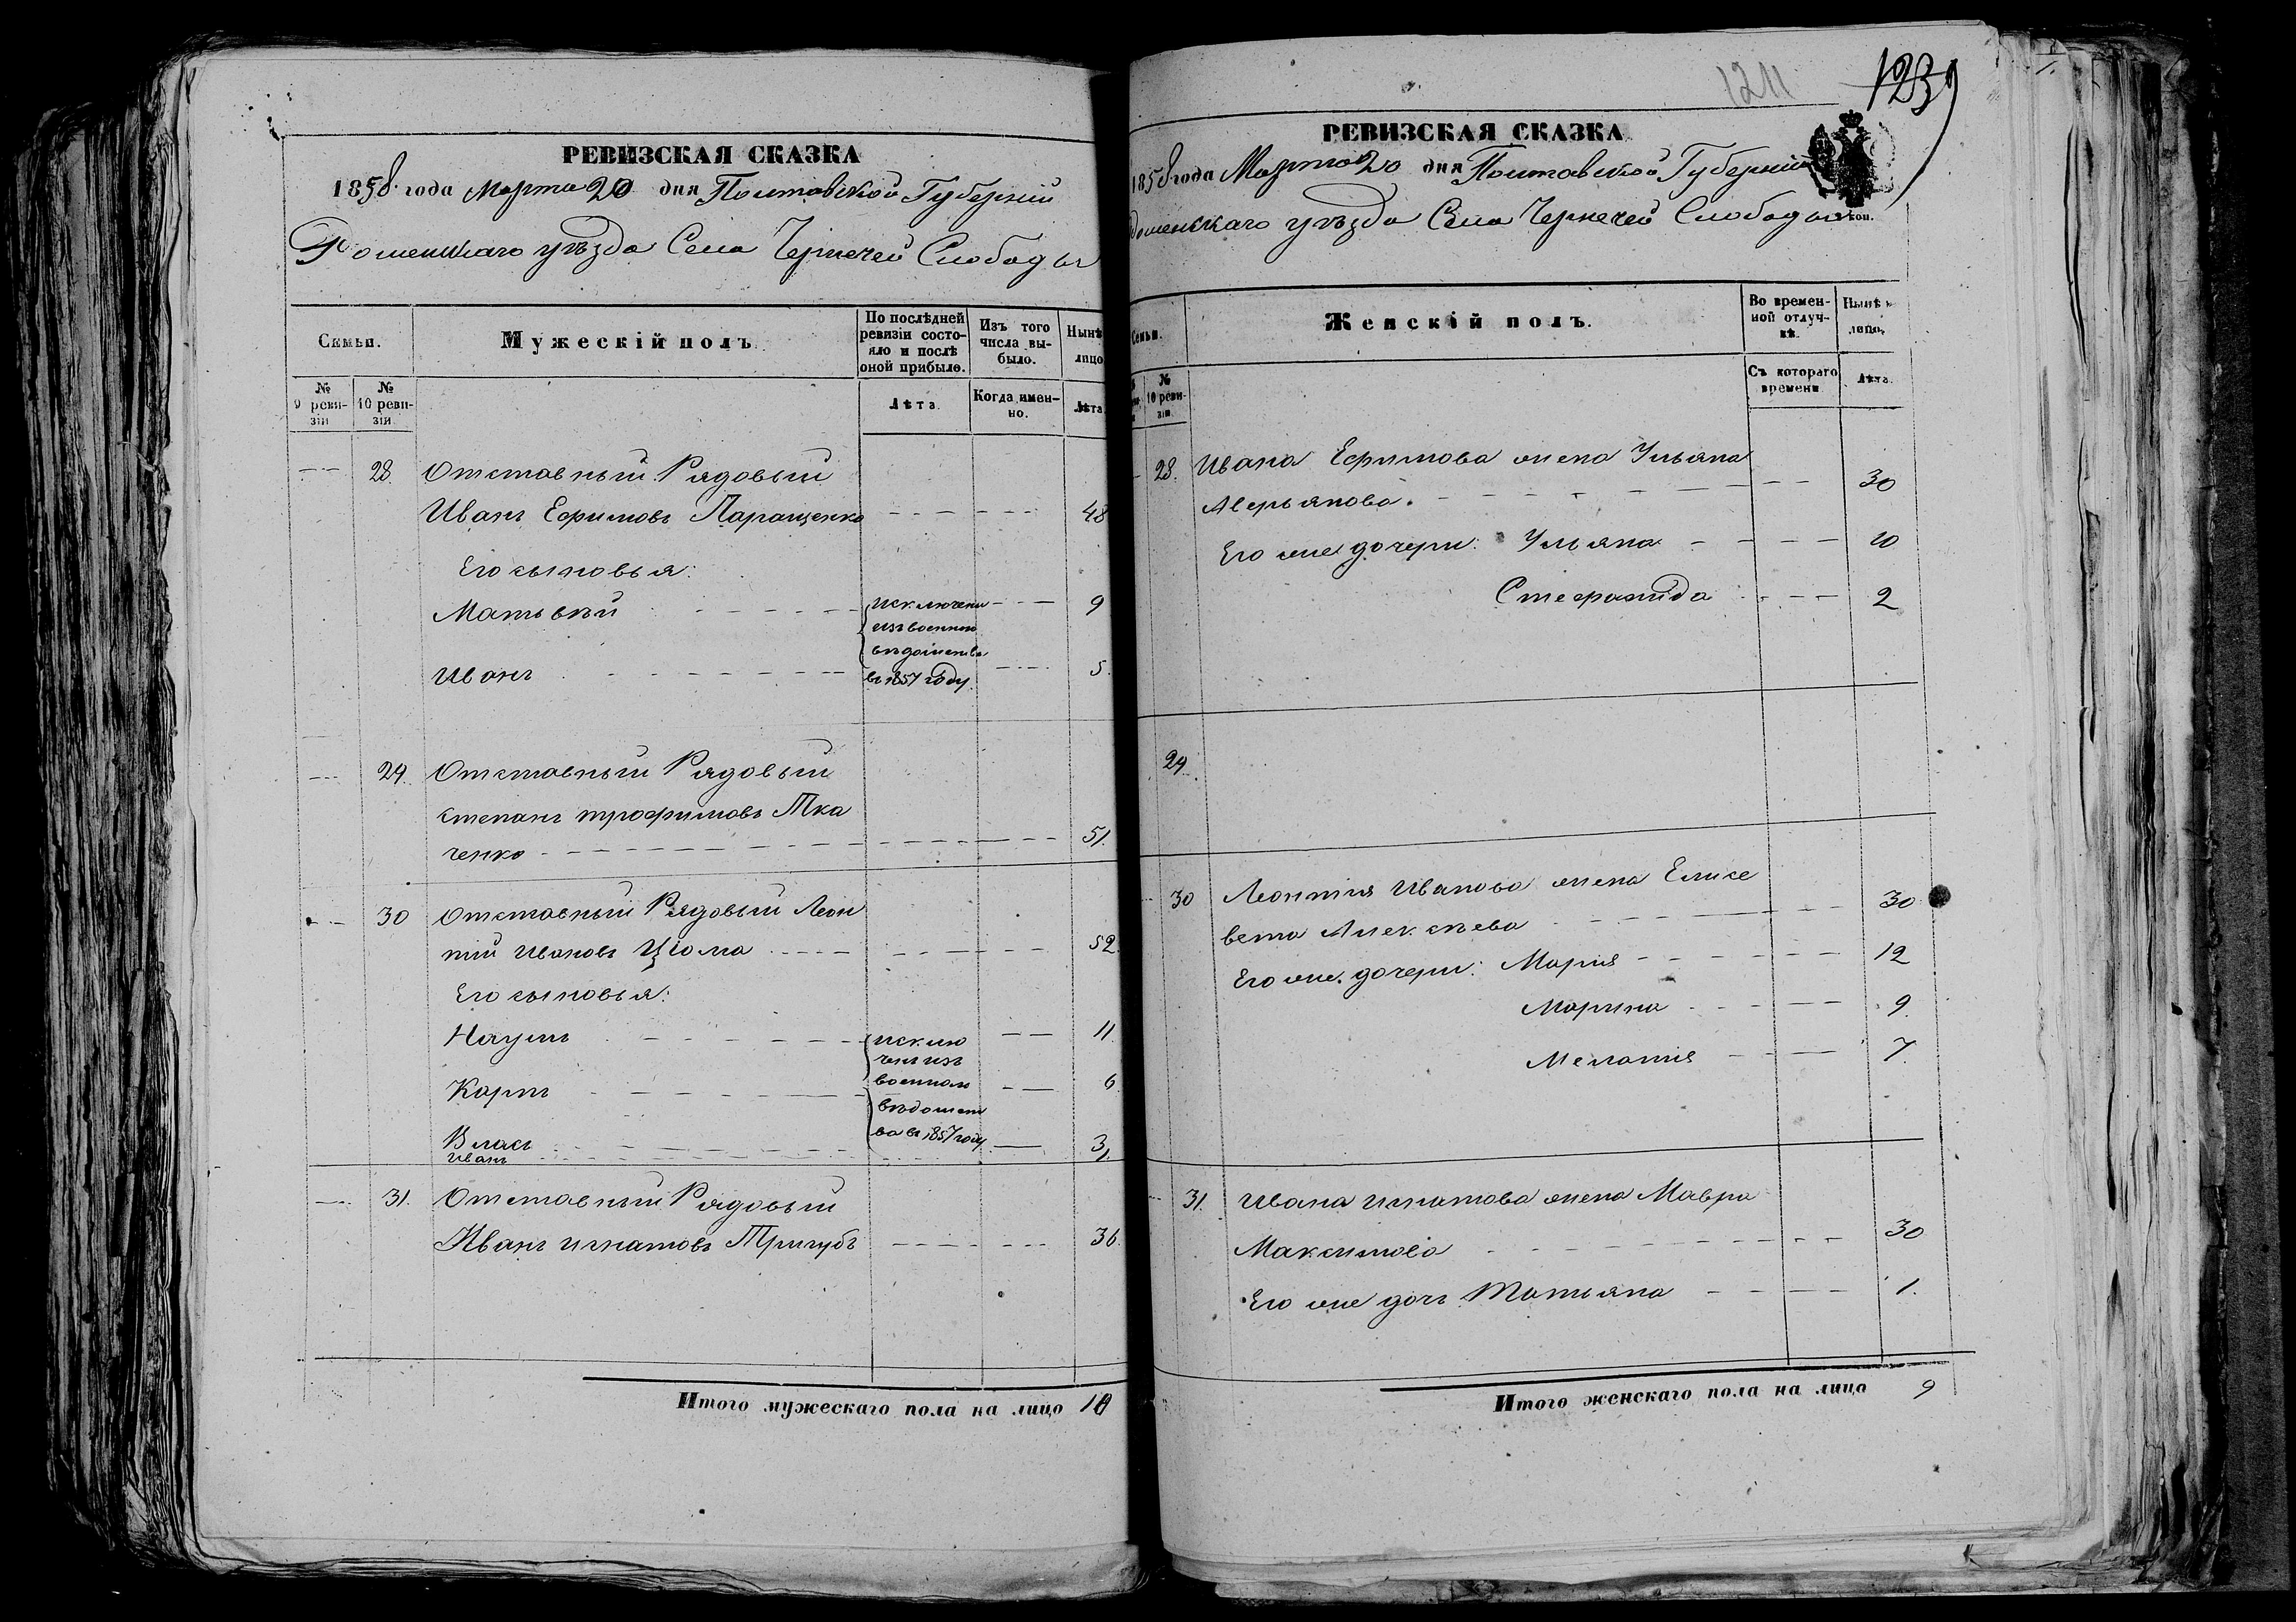 РЕВИЗСКАЯ СКАЗКА
1858 года Марта 20 дня Полтавской Губерніи
Роменскаго уѣзда Села Чернечей Слободы
Семьи.
Мужескій полъ
По послѣдней ревизіи состояло и послѣ оной прибыло.
Изъ того числа выбыло.
Нынѣ лицо
№ 9 ревизіи
№ 10 ревизіи
Лѣта
Когда именно.
Лѣта
28. Отставный Рядовый
Иванъ Ефимовъ Паращенко 48
Его сыновья:
Матвѣй исключены 9
изъ военнаго
вѣдомства
Иванъ въ 1857 году. 5
29. Отставный Рядовый
Степанъ Трофимовъ Тка
ченко 51.
30 Отставный Рядовый Леон
тій Ивановъ Цюма 52
Его сыновья:
Наумъ исклю 11
ченъ изъ
Карпъ военнаго 6
вѣдомст
Власъ ва въ 1857 году 3
Иванъ 1.
31. Отставный Рядовый
Иванъ Игнатовъ Тригубъ 36
Итого мужескаго пола на лицо 10
1211
1239
РЕВИЗСКАЯ СКАЗКА
1858 года Марта 20 дня Полтавской Губерніи
Роменскаго уѣзда Села Чернечей Слободы
коп.
Семьи.
Женскій полъ.
Во временной отлучкѣ.
Нынѣ на лицо.
№ 10 ревизіи
Съ котораго времени
Лѣта.
28. Ивана Ефимова жена Ульяна
Аверьянова. 30
Его же дочери: Ульяна 10
Стефанида 2
29.
30 Леонтія Иванова жена Елисе
вета Алексѣева 30
Его же дочери: Марія 12
Марина 9
Меланія 7
31. Ивана Игнатова жена Мавра
Максимова 30
Его же дочь Татьяна 1.
Итого женскаго пола на лицо 9